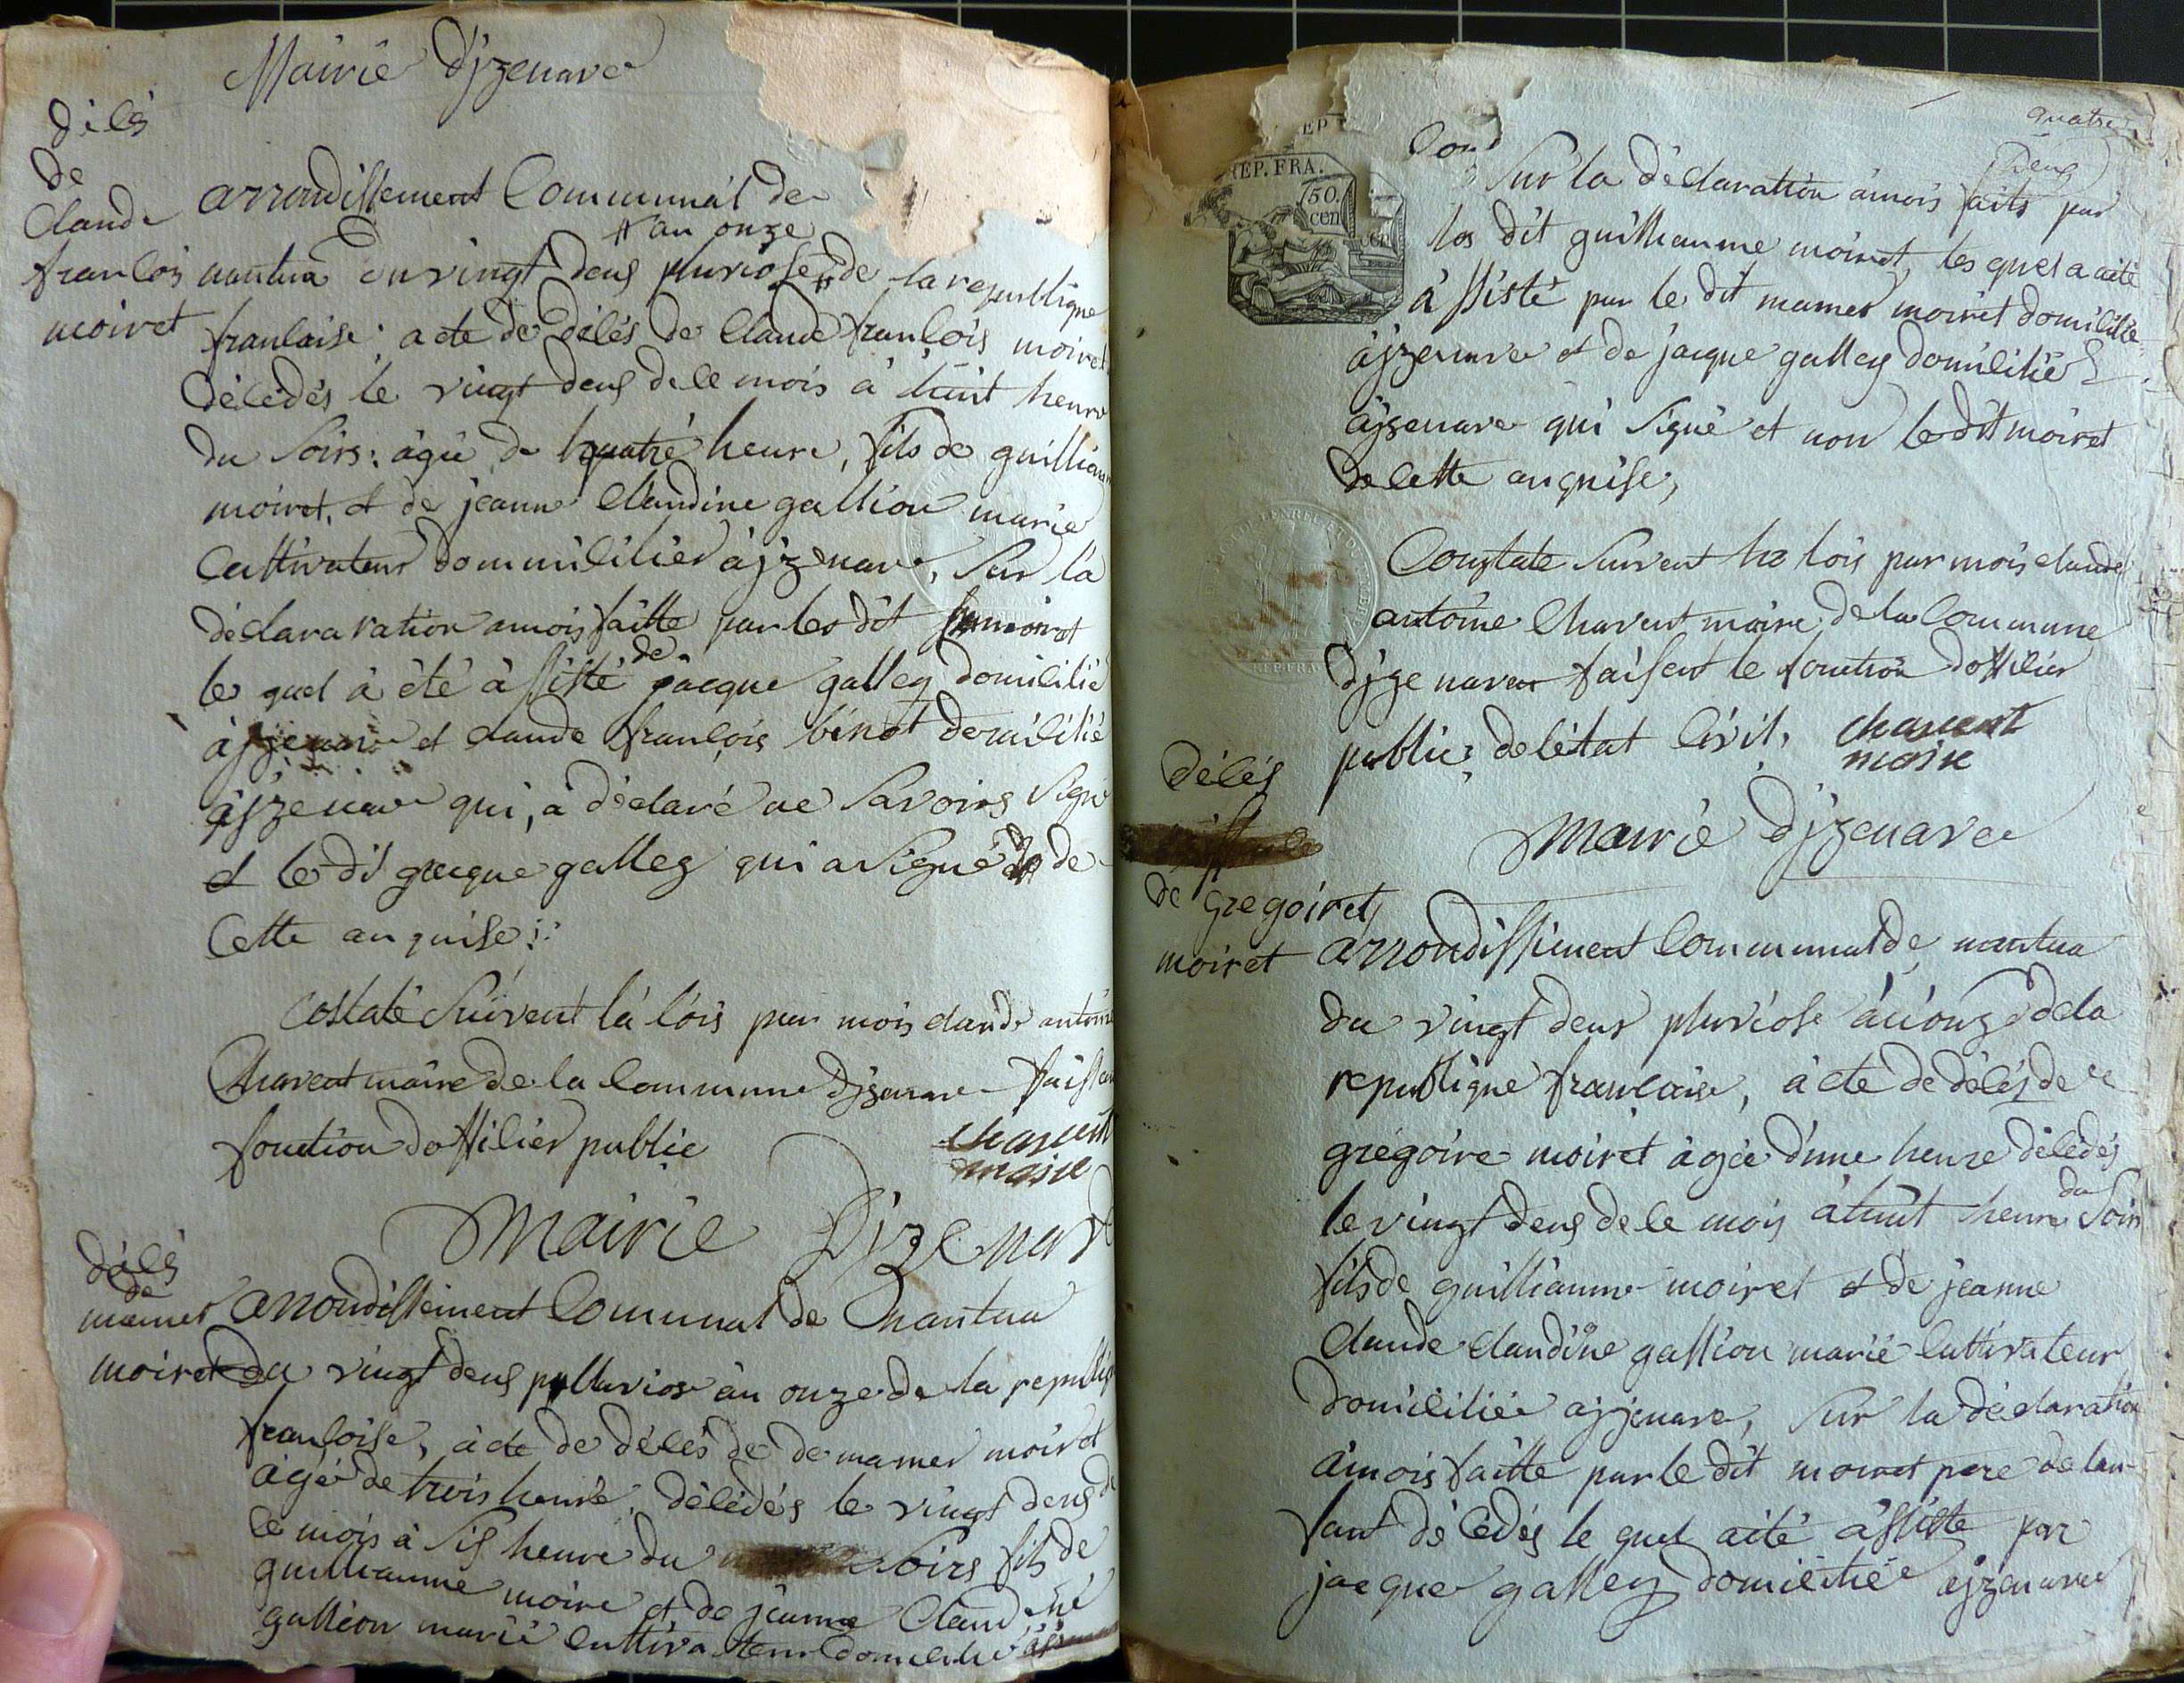 Mairie d'jzenave
délés
de
claude
françois
moiret
arrondissement Communal de
nantua du vingt deus pluviose de la republique
an onze
française; acte de délés de Claude françois moiret
délédés le vingt deus de le mois à huit heure
du soirs; âgé de quatre heure, fils de guilliaume
moiret, et de jeanne Claudine gallion marié
Cultivateur dommililier àjzenave, sur la
déclaravation amois faitte par les dit moiret
le quel à été àssisté de jacque galley domililié
àjzenave et claude françois binot domililié
àjzenave qui, à déclaré ne savoirs signé
et le dit jacque galley qui a signé de
Cette anquise;
Costaté suivent la lois par mois claude antoine
Chavent maire de la Commune djzenave faissent
fonction dossilier public
chavent
maire
Mairie Djzenave
délés
de
mamer
moiret
arrondissement Communal de nantua
du vingt deus plluviose an onze de la republique
françoise, àcte de délés de de mamer moiret
âgé de trois heure, délédés le vingt deus de
le mois à sis heure du soirs fils de
guilliaume moire et de jeanne Claudine
galléon marié cultivateur domililié
quatre
REP. FRA.
50
cen
deus
sur la déclaration àmois faits par
les dit guilliaume moiret, les quel a aité
à ssisté par le dit mamer moiret domililié
àjzenave et de jacque galley domililié
àjsenave qui signé et non le dit moiret
de cette anquise,
Constate suivent la lois par mois claude
antoine Chavent maire de la Commune
djzenave faisent le fonction dossilier
public de létat livil, chavent
maire
Mairie djzenave
délés
de gregoiret
moiret
arrondissiment Communal de nantua
du vingt deus pluviose an onze de la
republique française, àcte de délés de
grégoire moiret àgée d'une heure délédés
le vingt deus de le mois à huit heure du soir
fils de guilliaume moiret et de jeanne
claude claudine gallion marié Cultivateur
domililiée ajzenave, sur la déclaration
àmois faitte par le dit moiret pere de len-
fant délédés le quel aité àssisté par
jacque galley domililiée ajzenave